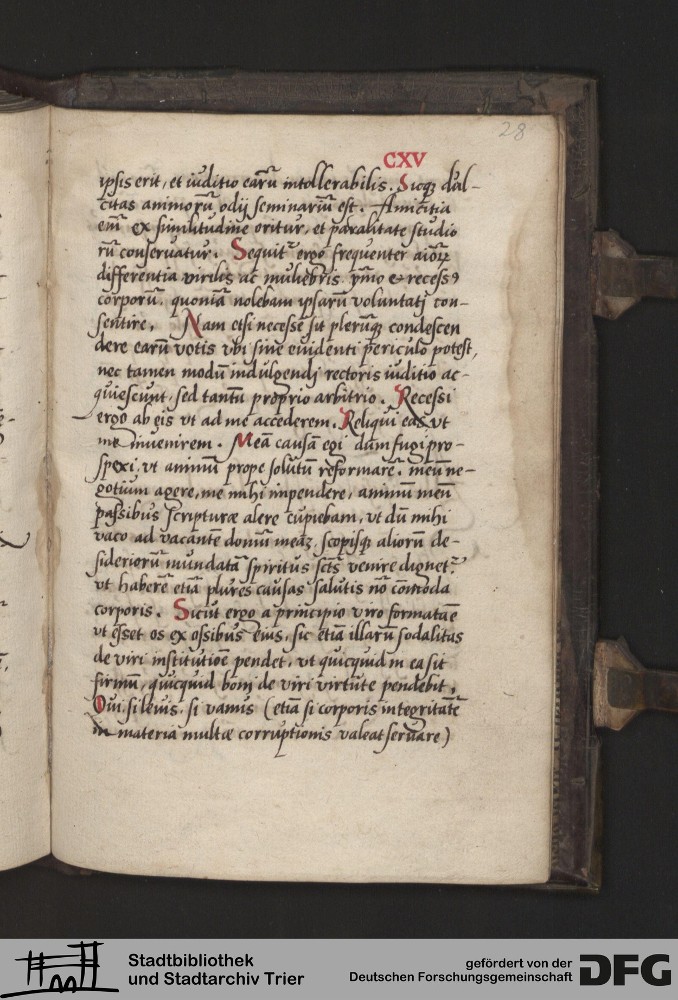 28
CXV
ipsis erit, et iuditio earū intollerabilis. Sicq; dul-
citas animorū odij seminariū est. Amicitia
em̄ ex similitudine oritur, et paralitate studio
rū conseruatur. Sequit᷑ ergo frequenter aīoꝝ
differentia viriles ac muliebris ymo & recessꝰ
corporū. quoniā nolebam ipsarū voluntatj con-
sentire, Nam etsi necesse sit plerūq; condescen
dere earū votis vbi sine euidenti periculo potest,
nec tamen modū indulgendj rectoris iuditio ac-
quiescunt, sed tantū proprio arbitrio. Recessi
ergo ab eis vt ad me accederem. Reliqui eas vt
me inuenirem. Meā causā egi dum fugi pro-
spexi, vt animū prope solutū reformarē. meū ne-
gotium agere, me mihi inpendere, animū meū
passibus scripturæ alere cupiebam, vt dū mihi
vaco ad vacantē domū meaʒ, scopisq; aliorū de-
sideriorū mundatā spiritus sct̄s venire dignet᷑
vt haberē etiā plures causas salutis nō cōmoda
corporis. Sicut ergo a principio viro formatæ
vt esset os ex ossibus eius, sic etiā illarū sodalitas
de viri institutioē pendet, vt quicquid in ea sit
firmū, quicquid bonj de viri virtute pendebit,
Qui si leuis, si vanus (etiā si corporis integritatē
in materia multæ corruptionis valeat seruare)
Stadtbibliothek
und Stadtarchiv Trier
gefördert von der
Deutschen Forschungsgemeinschaft
DFG